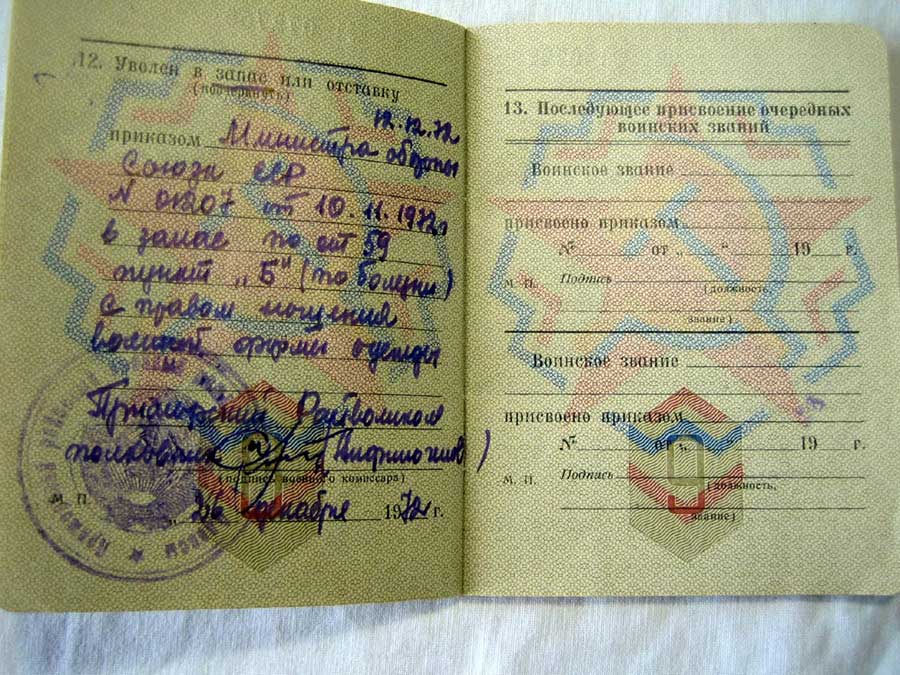 12. Уволен в запас или отставку
(подчеркнуть)
12.12.72
приказом Министра обороны
Союза ССР
N 01207 от 10.11.1972г
в запас по ст 59
пункт „Б" (по болезни)
с правом ношения
военной формы одежды
полковник
(подпись военного комиссара)
М. П.
„26" декабря 1972 г.
13. Последующее присвоение очередных
воинских званий
Воинское звание
присвоено приказом
№ от „ “ 19 г.
М. П. Подпись
(должность,
звание)
Воинское звание
присвоено приказом
№ от „ “ 19 г.
М. П. Подпись
(должность,
звание)